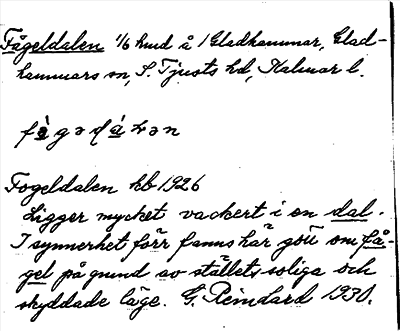 Fågeldalen 1/6 hmd å 1 Gladhammar, Glad-
hammars sn, S. Tjusts hd, Kalmar l.
Fogeldalen kb 1926
Ligger mycket vackert i en dal.
I synnerhet förr fanns här gott om få-
gel på grund av ställets soliga och
skyddade läge. G. Reinhard 1930.